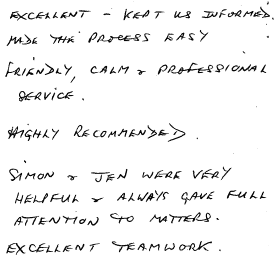 EXCELLENT - KEPT US INFORMED,
MADE THE PROCESS EASY
FRIENDLY, CALM & PROFESSIONAL
SERVICE.
HIGHLY RECOMMENDED.
SIMON & JEN WERE VERY
HELPFUL & ALWAYS GAVE FULL
ATTENTION TO MATTERS.
EXCELLENT TEAMWORK.